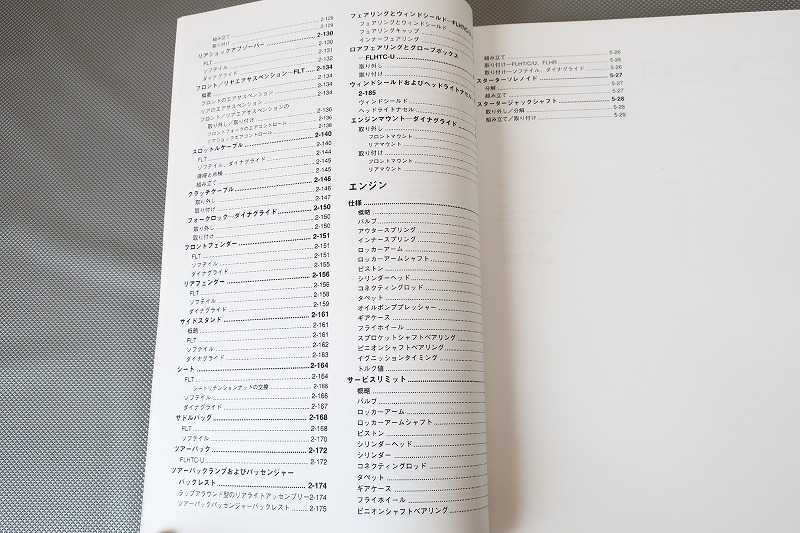 組み立て 2-129
取り付け 2-129
リアショックアブソーバー 2-130
FLT 2-130
ソフテイル 2-131
ダイナグライド 2-132
フロント／リヤエアサスペンション—FLT 2-134
概要 2-134
フロントのエアサスペンション 2-134
リアのエアサスペンション 2-134
フロント／リアエアサスペンションの
取り外し／取り付け 2-136
フロントフォークのエアコントロール 2-136
リアショックエアコントロール 2-138
スロットルケーブル 2-140
FLT 2-140
ソフテイル、ダイナグライド 2-144
清掃と点検 2-145
組み立て 2-145
クラッチケーブル 2-146
取り外し 2-146
取り付け 2-147
フォークロック—ダイナグライド 2-150
取り外し 2-150
取り付け 2-150
フロントフェンダー 2-151
FLT 2-151
ソフテイル 2-151
ダイナグライド 2-155
リアフェンダー 2-156
FLT 2-156
ソフテイル 2-158
ダイナグライド 2-159
サイドスタンド 2-161
概略 2-161
FLT 2-161
ソフテイル 2-162
ダイナグライド 2-163
シート 2-164
FLT 2-164
シートリテンションナットの交換 2-166
ソフテイル 2-166
ダイナグライド 2-167
サドルバッグ 2-168
FLT 2-168
ソフテイル 2-170
ツアーパック 2-172
FLHTC-U 2-172
ツアーパックランプおよびパッセンジャー
バックレスト 2-174
ラップアラウンド型のリアライトアッセンブリー 2-174
ツアーパックパッセンジャーバックレスト 2-175
フェアリングとウィンドシールド—FLHTC
フェアリングとウィンドシールド
フェアリングキャップ
インナーフェアリング
ロアフェアリングとグローブボックス
—FLHTC-U
取り外し
取り付け
ウィンドシールドおよびヘッドライトナセル
2-185
ウィンドシールド
ヘッドライトナセル
エンジンマウント—ダイナグライド
取り外し
フロントマウント
リアマウント
取り付け
フロントマウント
リアマウント
エンジン
仕様
概略
バルブ
アウタースプリング
インナースプリング
ロッカーアーム
ロッカーアームシャフト
ピストン
シリンダーヘッド
コネクティングロッド
タペット
オイルポンププレッシャー
ギアケース
フライホイール
スプロケットシャフトベアリング
ピニオンシャフトベアリング
イグニッションタイミング
トルク値
サービスリミット
概略
バルブ
ロッカーアーム
ロッカーアームシャフト
ピストン
シリンダーヘッド
シリンダー
コネクティングロッド
タペット
ギアケース
フライホイール
ピニオンシャフトベアリング
組み立て 5-25
取り付け—FLHT/C/U、FLHR 5-26
取り付け—ソフテイル、ダイナグライド 5-26
スターターソレノイド 5-27
分解 5-27
組み立て 5-27
スタータージャックシャフト 5-28
取り外し／分解 5-28
組み立て／取り付け 5-29